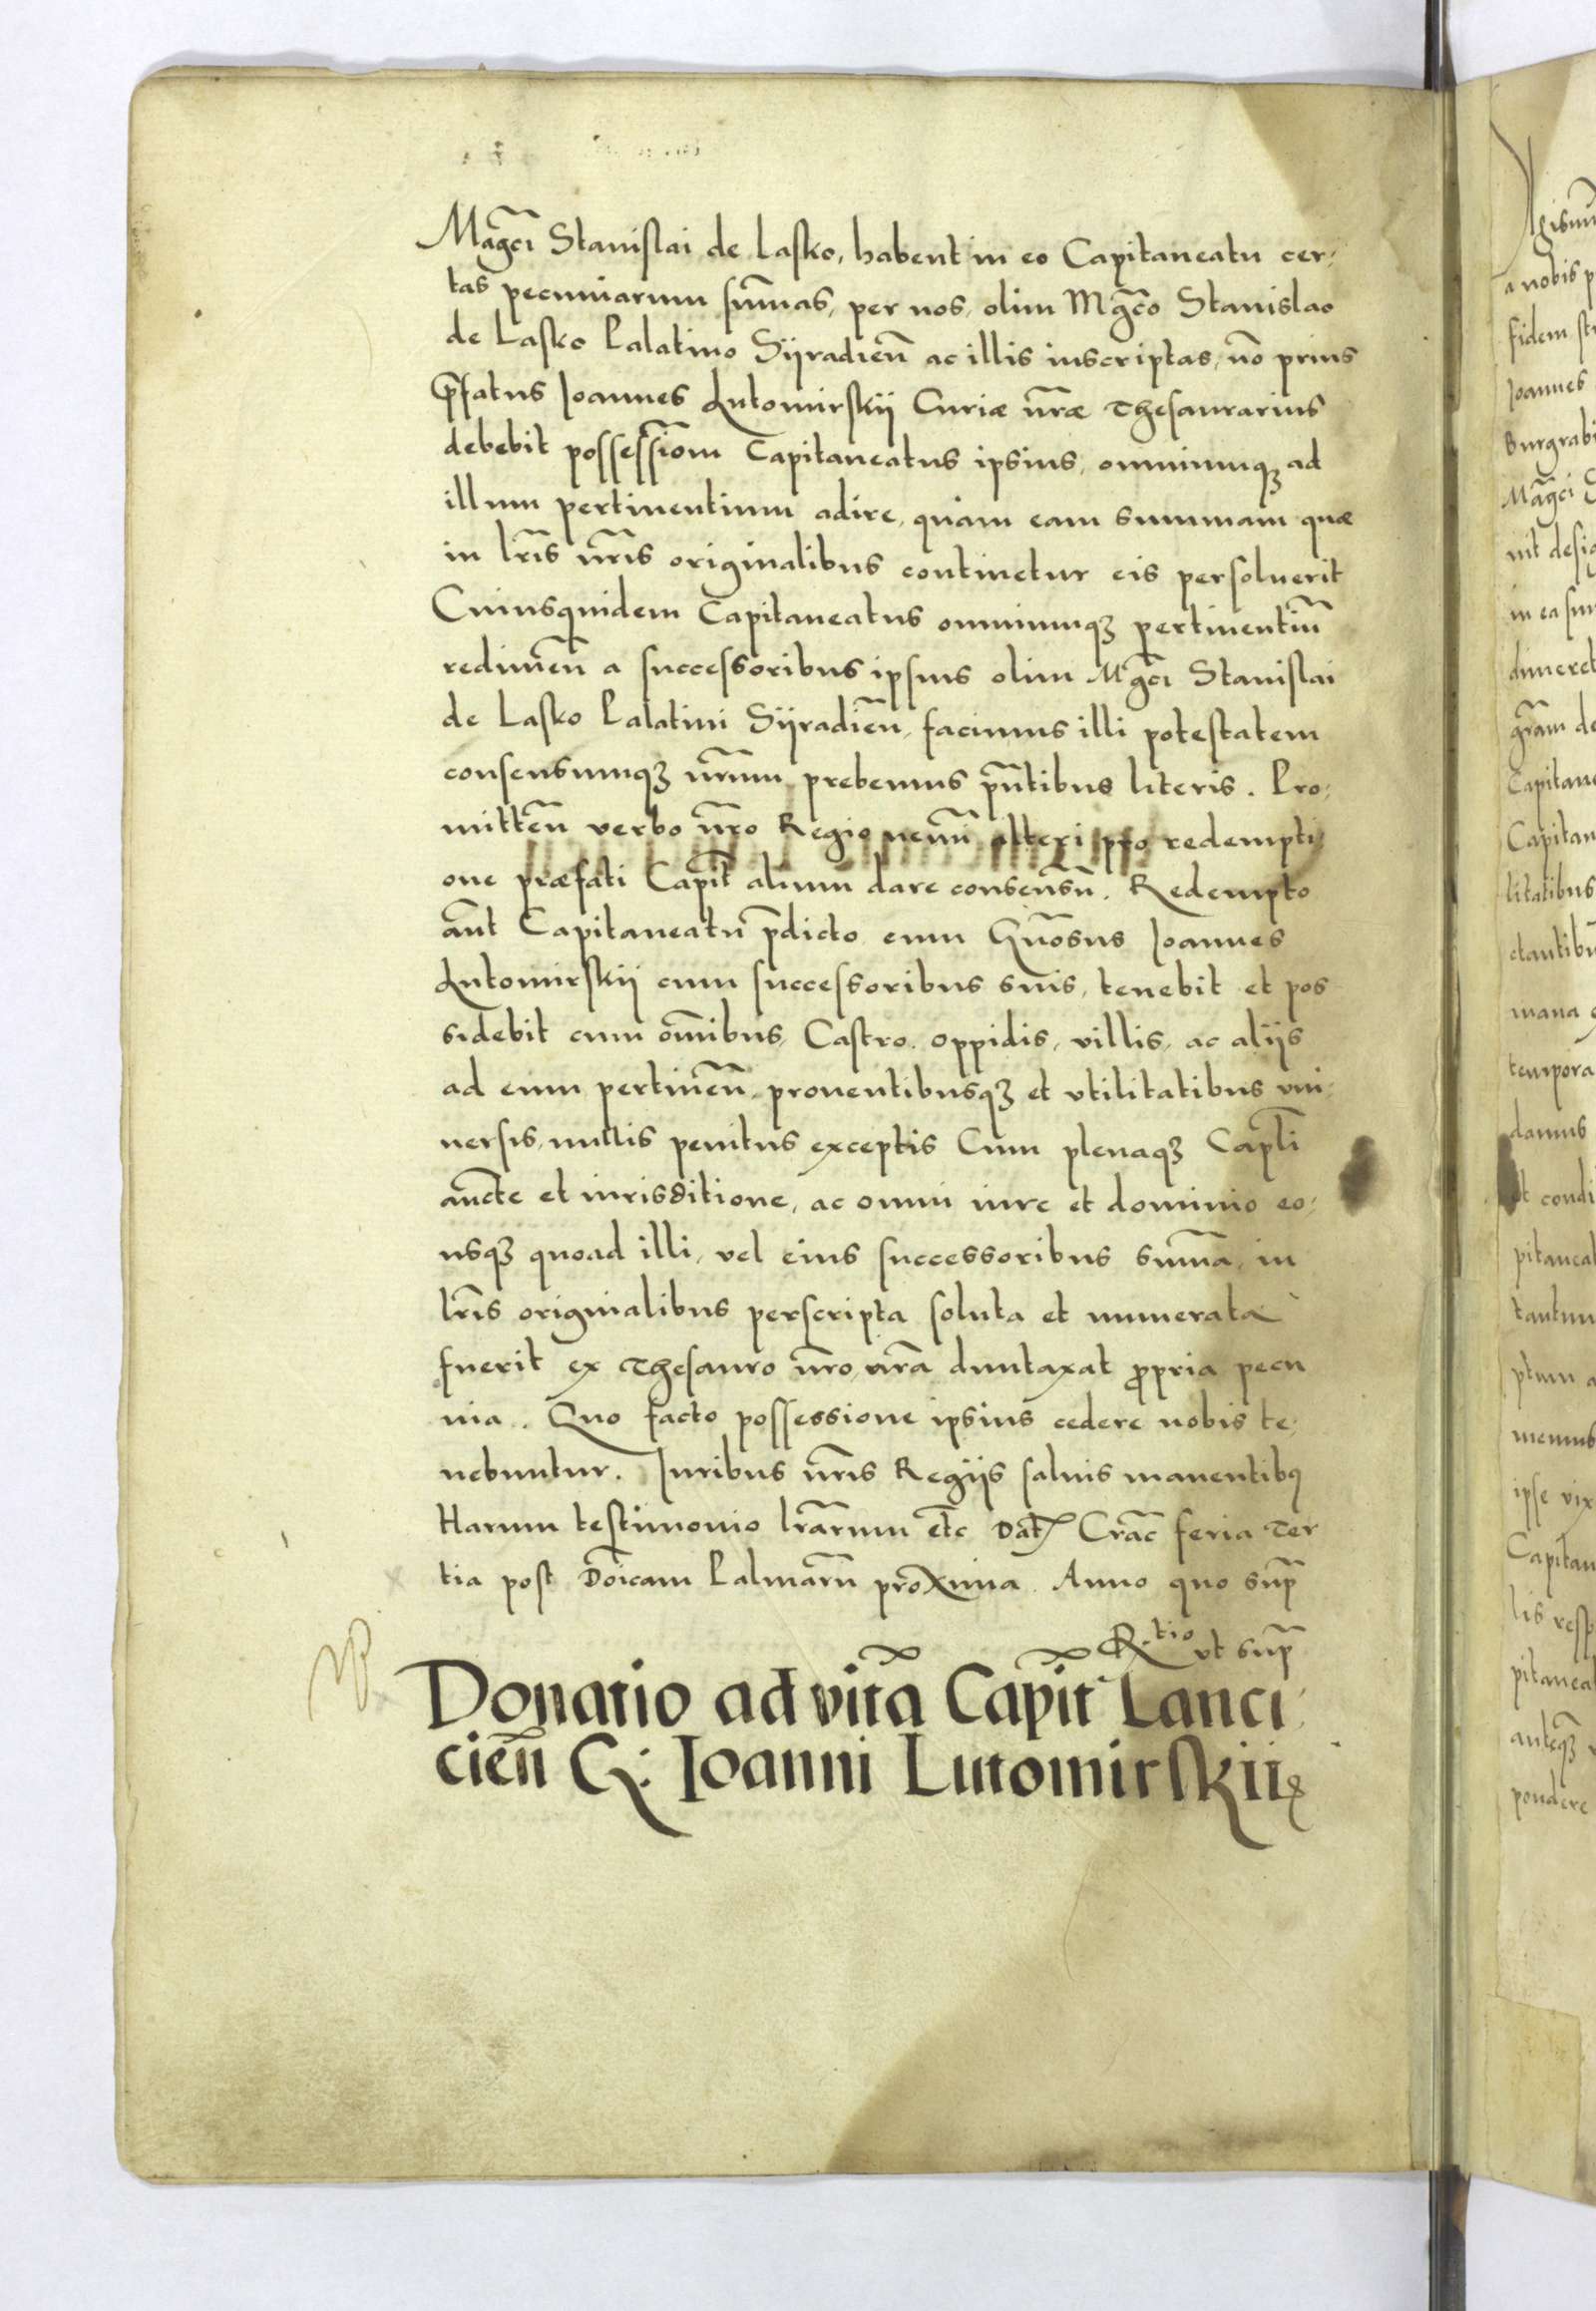 Magc̃i Stanislai de Lasko, habent in eo Capitaneatu cer,
tas pecuniarum sum̃as, per nos, olim Mgc̃o Stanislao
de Lasko Palatino Syradien̄ ac illis inscriptas, nõ prius
P̃fatus Ioannes Lutomirskij Curiæ nr̃æ Thesaurarius
debebit possessiom̃ Capitaneatus ipsius, omniumqꝫ ad
illum pertinentium adire, quam eam summam quæ
in lr̃is nr̃is originalibus continetur eis persoluerit
Cuiusquidem Capitaneatus omniumqꝫ pertinentiũ
redimen̄ a successoribus ipsius olim Mgc̃i Stanislai
de Lasko Palatini Syradien̄, facimus illi potestatem
consensumqꝫ nr̃um prebemus pñtibus literis. Pro,
mitten̄ verbo nr̃o Regio nem̃i alteri pro redempti,
one præfati Capit̃ alium dare consensũ. Redempto
aũt Capitaneatu p̃dicto eum Gñosus Ioannes
Lutomirskij cum successoribus suis, tenebit et pos
sidebit cum om̃ibus, Castro. oppidis, villis, ac alijs
ad eum pertinen̄, prouentibusqꝫ et vtilitatibus vni,
uersis, nullis penitus exceptis Cum plenaqꝫ Capĩtli
aucte et iurisditione, ac omni iure et dominio eo,
usqꝫ quoad illi, vel eius successoribus sum̃a, in
lr̃is originalibus perscripta soluta et numerata
fuerit ex Thesauro nr̃o, nr̃a duntaxat ꝓpria pecu
nia. Quo facto possessione ipsius cedere nobis te,
nebuntur. Iuribus nr̃is Regijs saluis manentibꝰ
Harum testimonio lr̃arum et̃c Dat̃ Crac̃ feria Ter
tia post Dõicam Palmarũ proxima. Anno quo sup̃
R.tio vt sup̃
Donatio ad vitã Capit̃ Lanci,
cien̄ G: Ioanni Lutomirskij